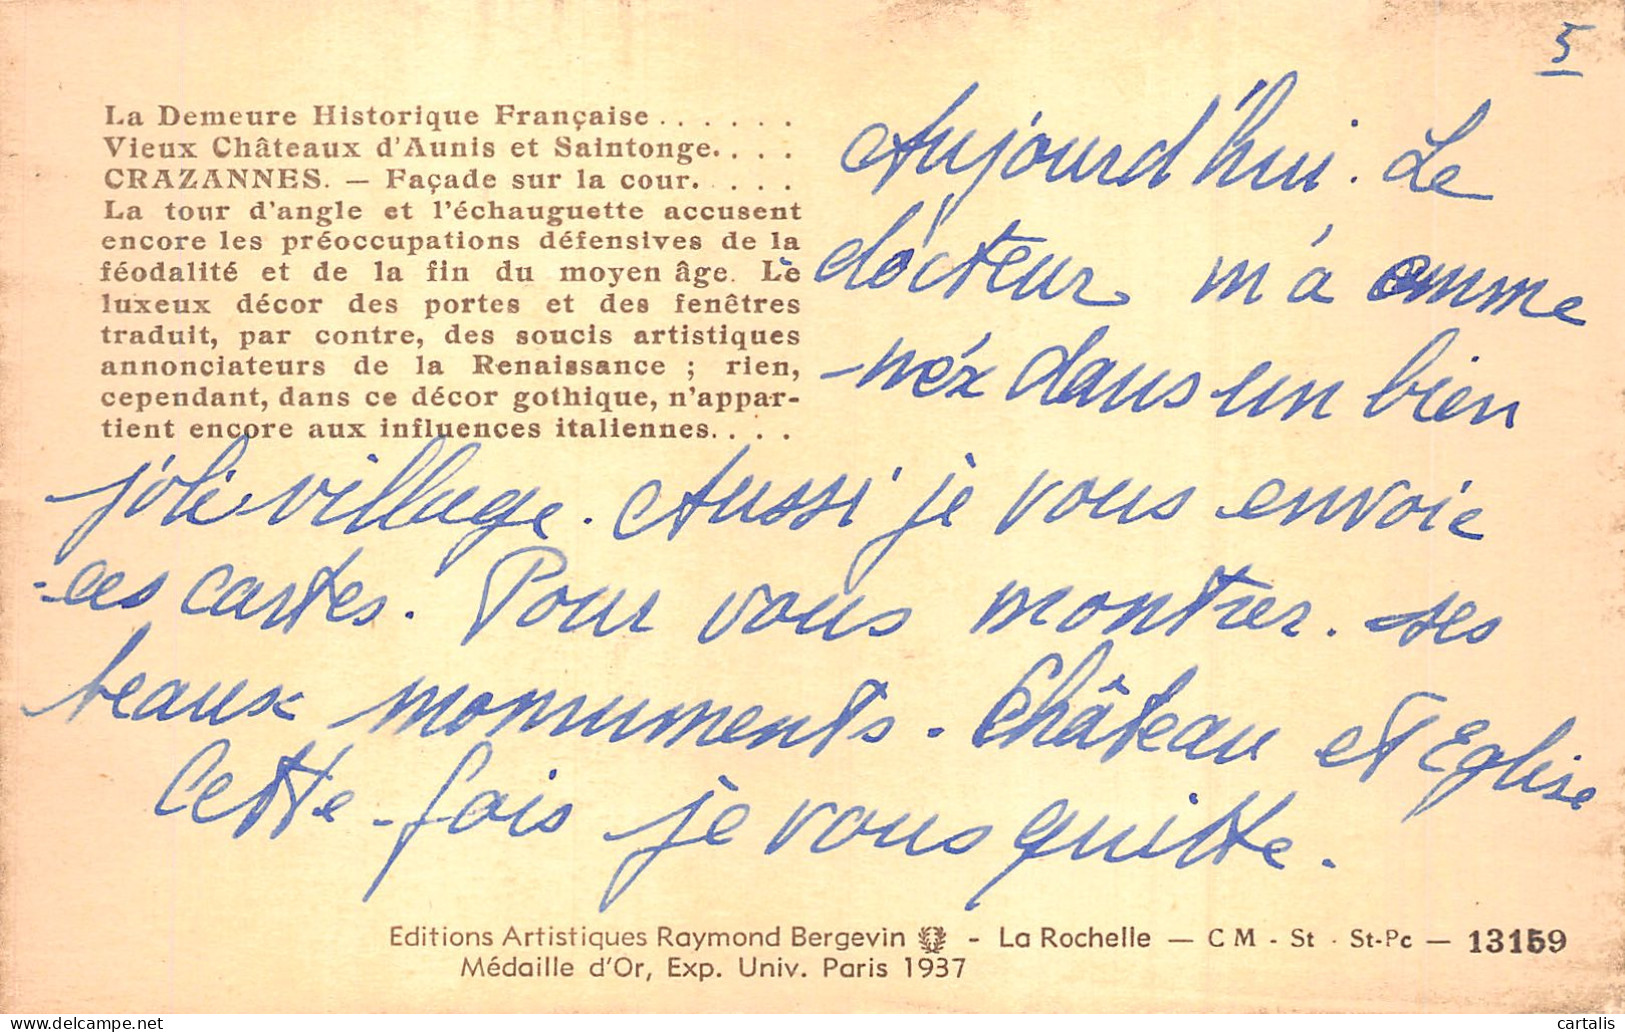 5
La Demeure Historique Française . . . . . .
Vieux Châteaux d'Aunis et Saintonge. . . .
CRAZANNES. — Façade sur la cour. . . . .
La tour d'angle et l'échauguette accusent
encore les préoccupations défensives de la
féodalité et de la fin du moyen âge. Le
luxeux décor des portes et des fenêtres
traduit, par contre, des soucis artistiques
annonciateurs de la Renaissance ; rien,
cependant, dans ce décor gothique, n'appar-
tient encore aux influences italiennes. . . .
Aujourd'hui. Le
docteur m'a emme
-néz dans un bien
joli village. Aussi je vous envoie
ces cartes. Pour vous montrer. ses
beaux monuments. Château et Eglise
Cette fois je vous quitte.
Editions Artistiques Raymond Bergevin - La Rochelle — C M - St - St-Pc — 13159
Médaille d'Or, Exp. Univ. Paris 1937
delcampe.net
cartalis